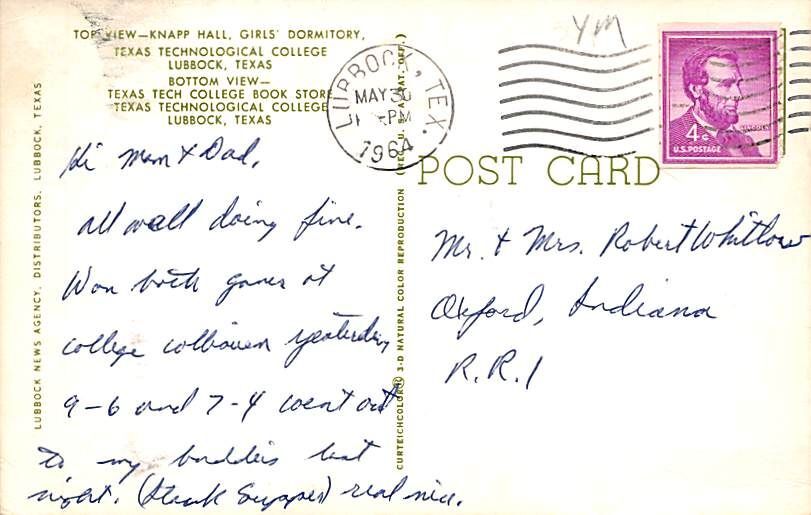 TOP VIEW—KNAPP HALL, GIRLS' DORMITORY,
TEXAS TECHNOLOGICAL COLLEGE
LUBBOCK, TEXAS
BOTTOM VIEW—
TEXAS TECH COLLEGE BOOK STORE
TEXAS TECHNOLOGICAL COLLEGE
LUBBOCK, TEXAS
LUBBOCK NEWS AGENCY, DISTRIBUTORS, LUBBOCK, TEXAS
Hi Mom & Dad,
All well doing fine.
Won both games at
college yesterday
9-6 and 7-4 went out
to my last
night. (Steak Supper) real nice.
CURTEICHCOLOR® 3-D NATURAL COLOR REPRODUCTION (REG. U. S. A. PAT. OFF.)
LUBBOCK, TEX.
MAY 30
PM
1964
YM
LINCOLN
4¢
U.S. POSTAGE
POST CARD
Mr. & Mrs. Robert Whitlow
Oxford, Indiana
R.R.1